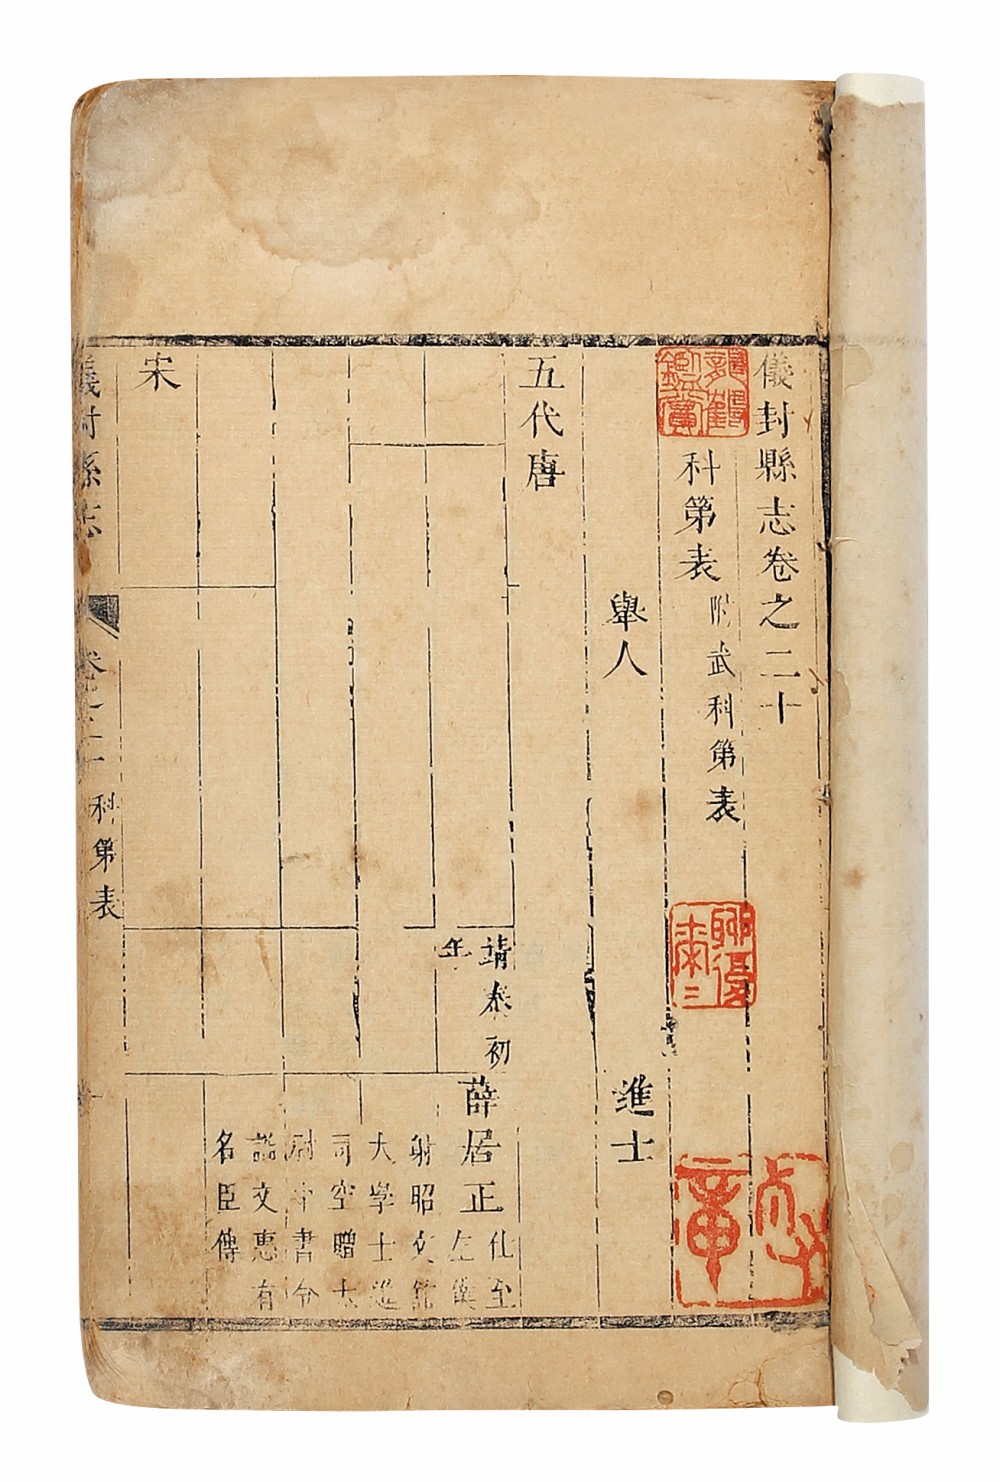 儀封縣志卷之二十
科第表 附武科第表
舉人 進士
五代唐
靖泰初
年
薛居正 仕至
左僕
射昭文館
大學士進
司空贈太
尉中書令
諡文惠有
名臣傳
宋
儀封縣志 卷之二十 科第表
鑑賞